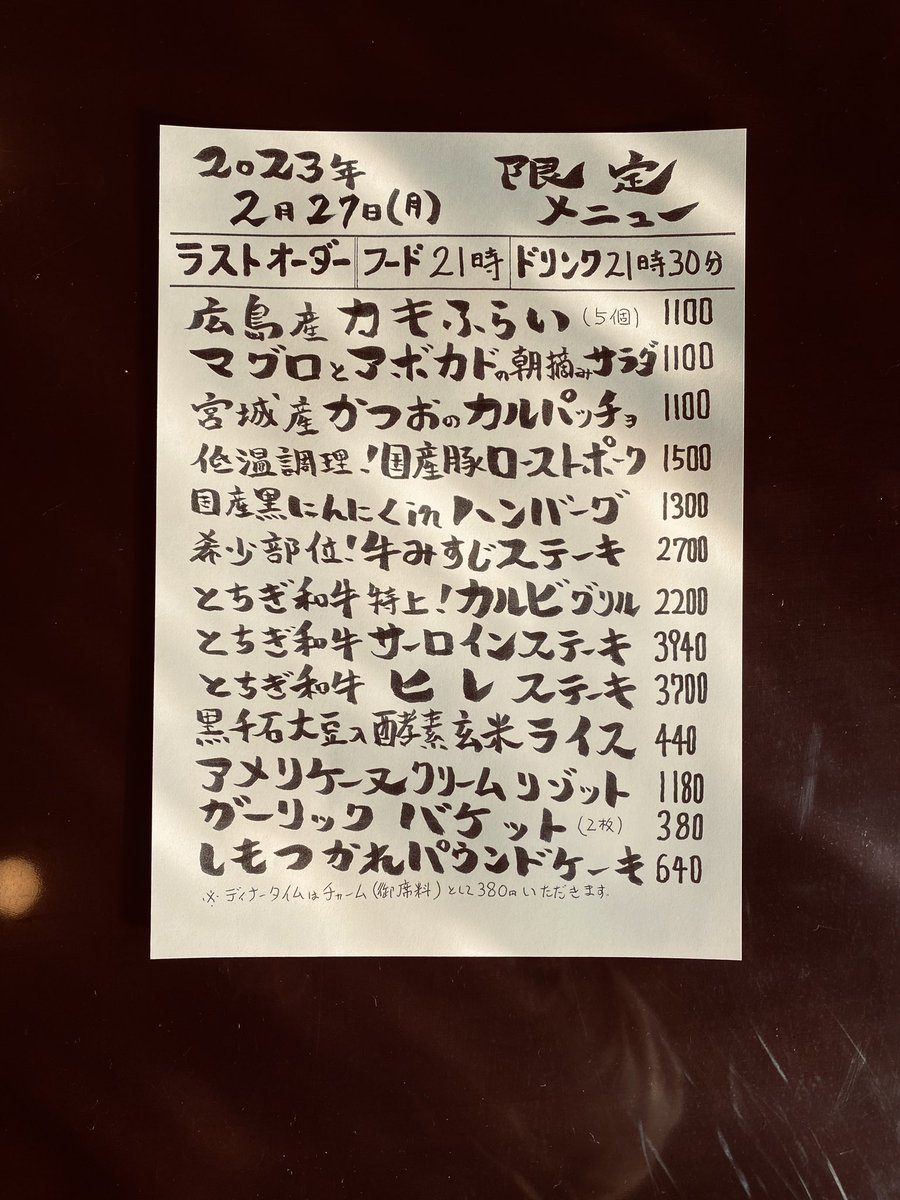 2023年 限定
2月27日(月) メニュー
ラストオーダー フード21時 ドリンク21時30分
広島産カキふらい(5個) 1100
マグロとアボカドの朝摘みサラダ 1100
宮城産かつおのカルパッチョ 1100
低温調理!国産豚ローストポーク 1500
国産黒にんにくinハンバーグ 1300
希少部位!牛みすじステーキ 2700
とちぎ和牛特上!カルビグリル 2200
とちぎ和牛サーロインステーキ 3940
とちぎ和牛ヒレステーキ 3700
黒千石大豆入酵素玄米ライス 440
アメリケーヌクリームリゾット 1180
ガーリックバケット(2枚) 380
しもつかれパウンドケーキ 640
※ディナータイムはチャーム(御席料)として380円いただきます。